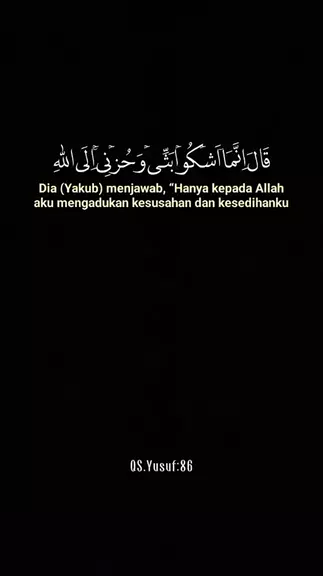 قَالَ اِنَّمَآ اَشْكُوْا بَثِّيْ وَحُزْنِيْٓ اِلَى اللّٰهِ
Dia (Yakub) menjawab, “Hanya kepada Allah
aku mengadukan kesusahan dan kesedihanku
QS.Yusuf:86